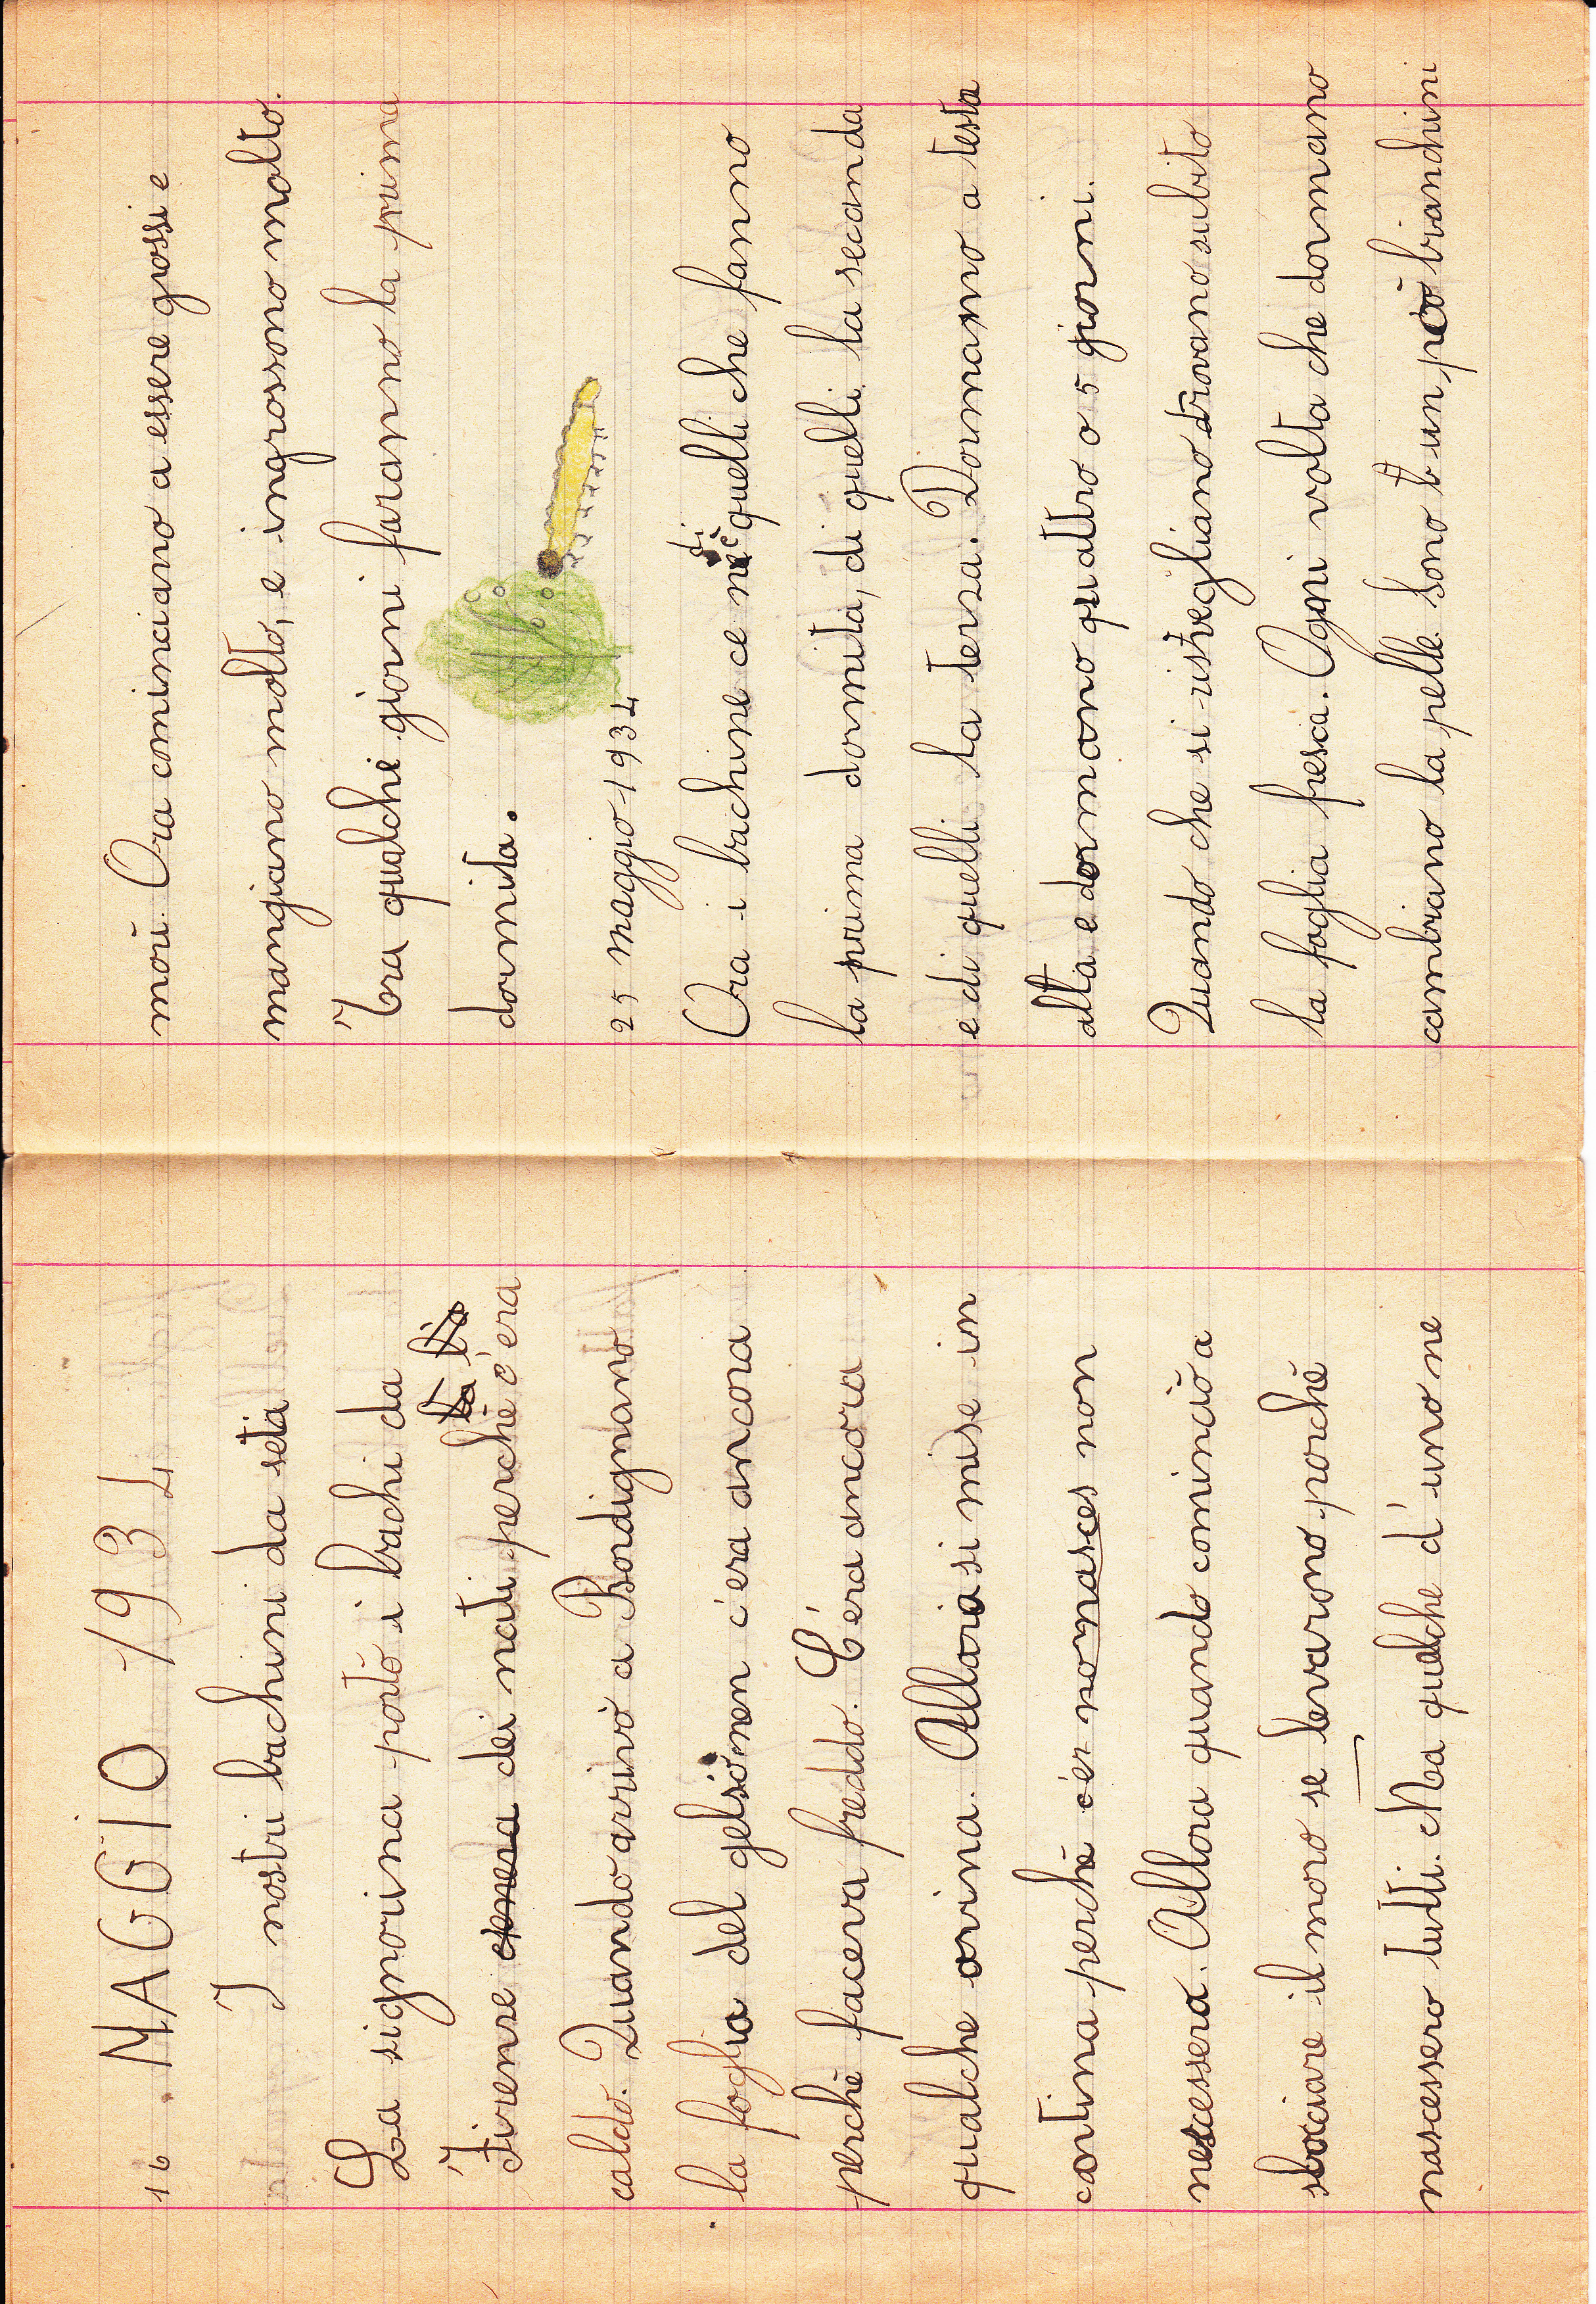 16 MAGGIO 1934
I nostri bachini da seta
La signorina portò i bachi da
Firense dei nati perchè c'era
caldo. Quando arrivò a Bordignano
la foglia del gelso non c'era ancora
perchè faceva freddo. C'era ancora
qualche ovina. Allora si mise in
cantina perchè non
nescessero. Allora quando cominciò a
sbociare il moro se levarono porchè
nascessero tutti. Ma qualche d'uno ne
morì. Ora cominciano a essere grossi e
mangiano molto, e ingrossono molto.
Tra qualche giorni faranno la prima
dormita.
25 maggio 1934
Ora i bachine ce di quelli che fanno
la prima dormita, di quelli la seconda
e di quelli la terza. Dormano a testa
alta e dormano quattro o 5 giorni.
Quando che si risvegliano trovano subito
la foglia fresca. Ogni volta che dormano
cambiano la pelle. Sono un pò bianchini